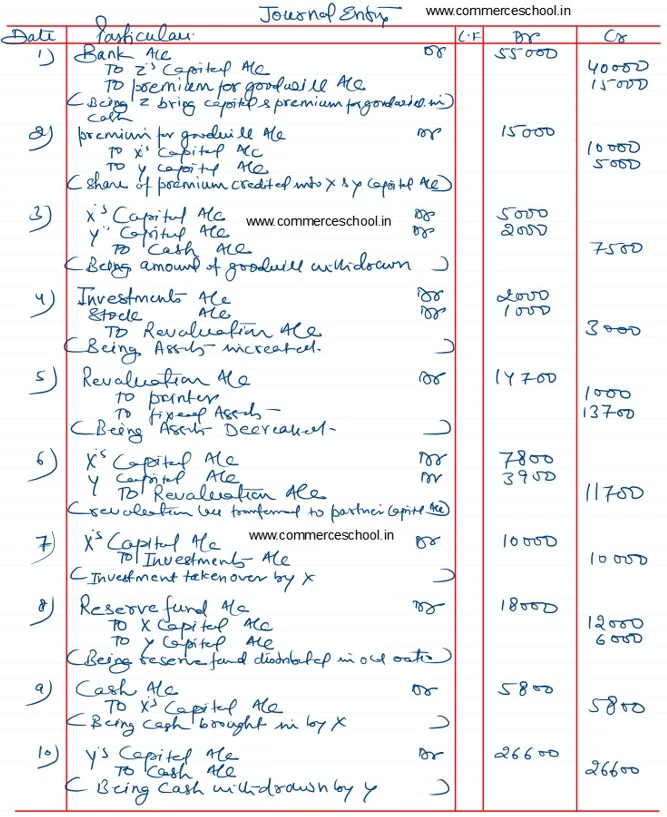 Journal Entry www.commerceschool.in
Date Particulars L.F Dr Cr
1) Bank A/c Dr 55000
To Z's Capital A/c 40000
To premium for goodwill A/c 15000
(Being Z bring capital & premium for goodwill in
cash
2) premium for goodwill A/c Dr 15000
To X's Capital A/c 10000
To Y Capital A/c 5000
(share of premium credited into X & Y Capital A/c)
3) X's Capital A/c www.commerceschool.in Dr 5000
Y" Capital A/c Dr 2000
To Cash A/c 7500
(Being amount of goodwill withdrawn)
4) Investments A/c Dr 2000
Stock A/c Dr 1000
To Revaluation A/c 3000
(Being Assets increased.)
5) Revaluation A/c Dr 14700
To printer 1000
To fixed Assets 13700
(Being Assets Decreased.)
6) X's Capital A/c Dr 7800
Y Capital A/c Dr 3900
To Revaluation A/c 11700
(revaluation transferred to partner Capital A/c)
7) X's Capital A/c www.commerceschool.in Dr 10000
To Investments A/c 10000
(Investment taken over by X)
8) Reserve fund A/c Dr 18000
To X Capital A/c 12000
To Y Capital A/c 6000
(Being reserve fund distributed in old ratio)
9) Cash A/c Dr 5800
To X's Capital A/c 5800
(Being Cash brought in by X)
10) Y's Capital A/c Dr 26600
To Cash A/c 26600
(Being Cash withdrawn by Y)